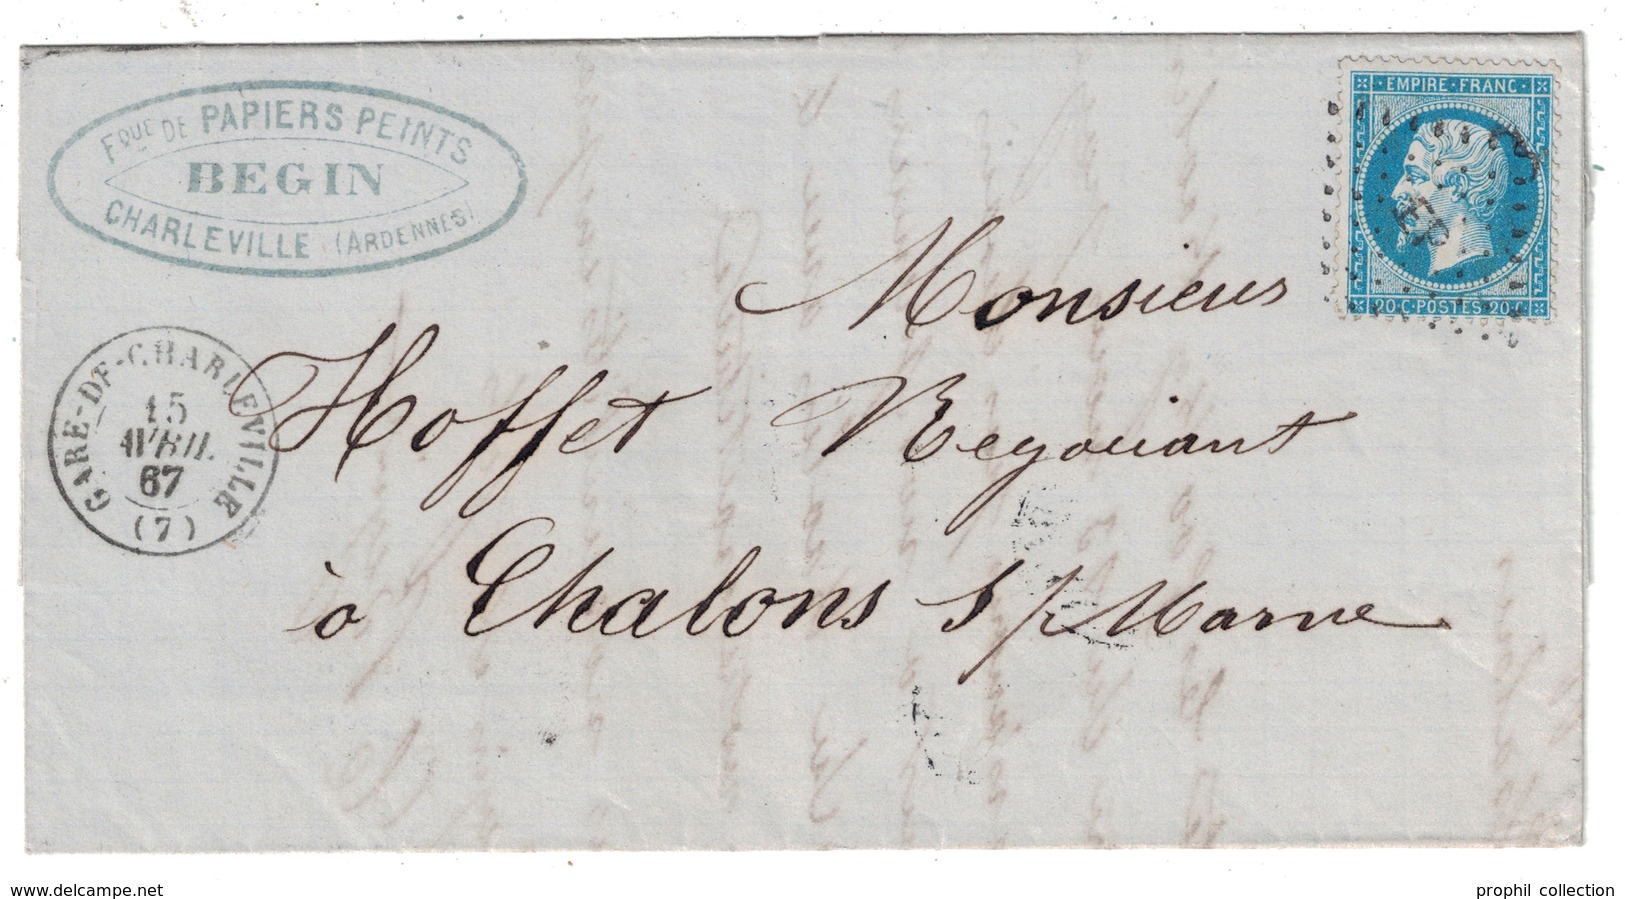 Fque DE PAPIERS PEINTS
BEGIN
CHARLEVILLE (ARDENNES)
EMPIRE·FRANC·
20·C·POSTES·20
GARE-DE-CHARLEVILLE
15
AVRIL
67
(7)
Monsieur
Hoffet Negociant
à Chalons s/Marne
www.delcampe.net
prophil collection